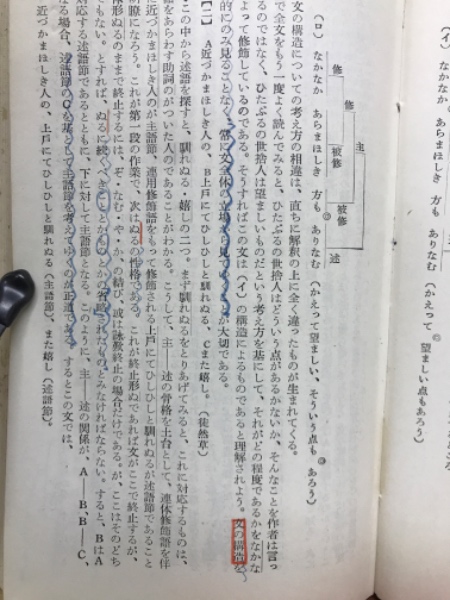 (イ)
なかなか あらまほしき 方も ありなむ (かえって 望ましい点もあろう)
(ロ) なかなか あらまほしき 方も ありなむ (かえって望ましい、そういう点も あろう)
修
修
被修
主
被修
述
文の構造についての考え方の相違は、直ちに解釈の上に全く違ったものが生まれてくる。
で全文をもう一度よく読んでみると、ひたぶるの世捨人はどういう点があるかないか、そんなことを作者は言っ
るのではなく、ひたぶるの世捨人は望ましいものだという考え方を基にして、それがどの程度であるかをなかな
よって修飾しているのである。そうすればこの文は(イ)の構造によるものであると理解されよう。文の構造を
的にのみ見ることなく、常に文全体の立場から見ていくことが大切である。
【二】 A近づかまほしき人の、B上戸にてひしひしと馴れぬる、Cまた嬉し。(徒然草)
この中から述語を探すと、馴れぬる・嬉しの二つ。まず馴れぬるをとりあげてみると、これに対応するものは、
語をあらわす助詞のがついた人のであることがわかる。こうして、主——述の骨格を土台として、連体修飾語を伴
に近づかまほしき人のが主語節、連用修飾語をもって修飾される上戸にてひしひしと馴れぬるが述語節であること
明瞭になろう。これが第一段の作業で、次はぬるの性格である。これが終止形ぬであれば文がここで終止するが、
体形ぬるのままで終止するには、ぞ・なむ・や・か・の結び、或は詠歎終止の場合だけである。が、ここはそのどち
でもない。とすれば、ぬるに続くべきことかものかの省略されたものとみなければならない。すると、BはA
対応する述語節であるとともに、下に対して主語節となる。このように、主——述の関係が、A——B、B——C、
なる場合、述語節のCを基として主語節を考えてゆくのが正道である。するとこの文では、
近づかまほしき人の、上戸にてひしひしと馴れぬる(主語節)、また嬉し(述語節)。